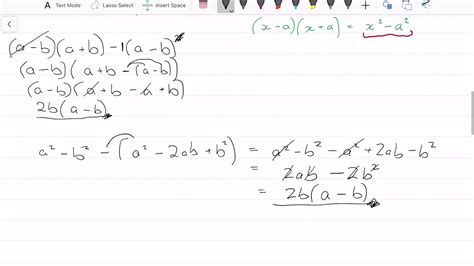 A Text Mode Lasso Select Insert Space
(x-a)(x+a) = x²-a²
(a-b)(a+b)-1(a-b)²
(a-b)(a+b-(a-b))
(a-b)(a+b-a+b)
2b(a-b)
a²-b²-(a²-2ab+b²) = a²-b²-a²+2ab-b²
= 2ab-2b²
= 2b(a-b)